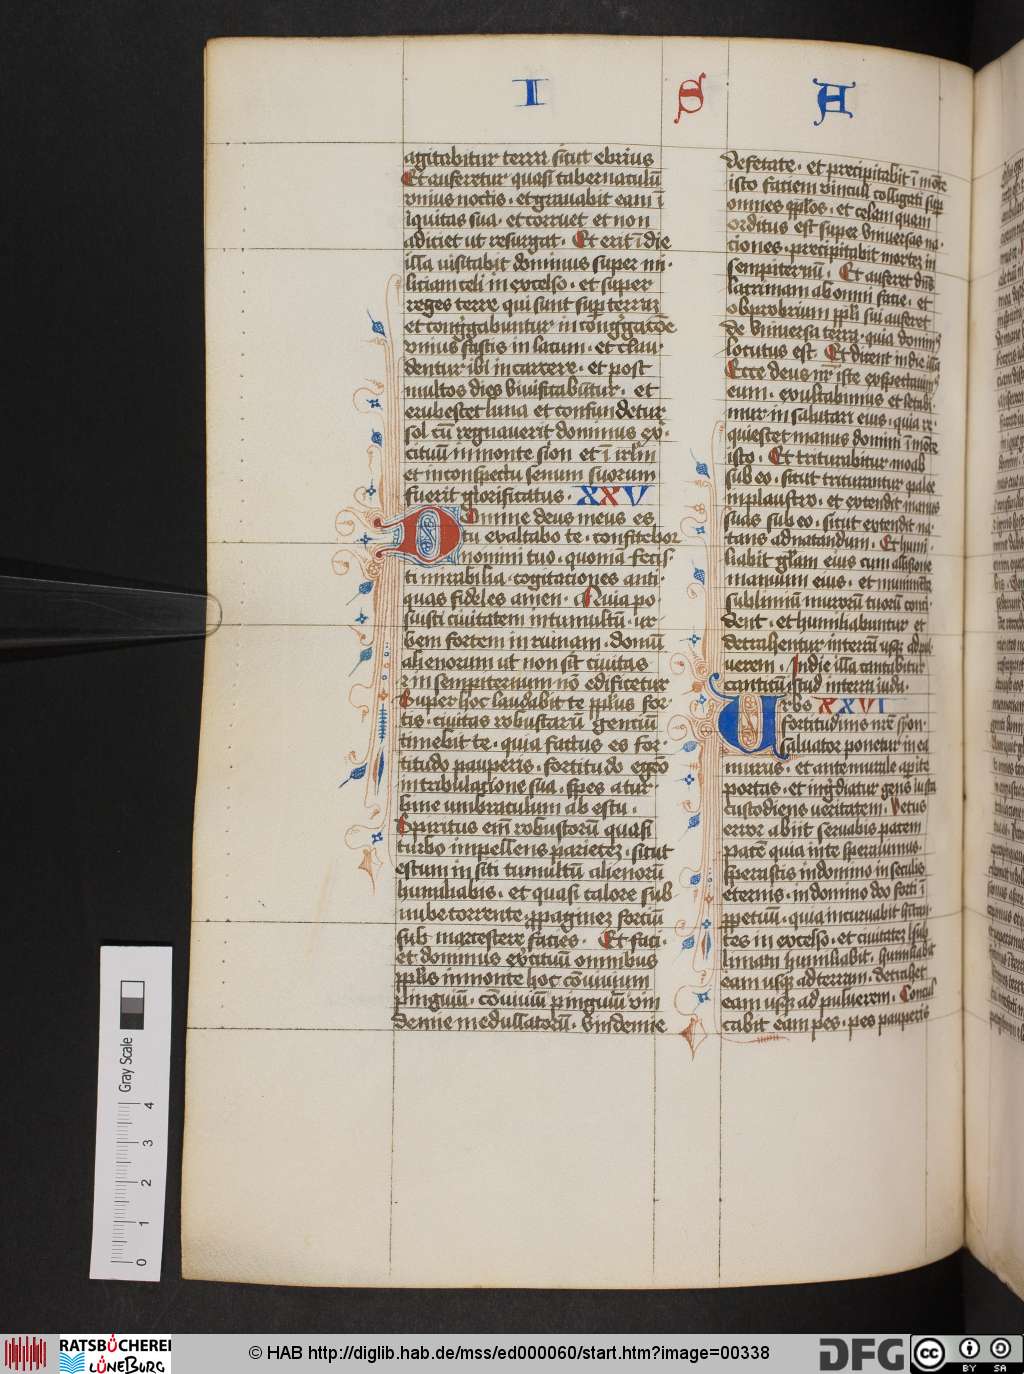 I S A
agitabitur terra sicut ebrius
Et auferetur quasi tabernaculū
vnius noctis · et grauabit eam ī
iquitas sua · et corruet et non
adiciet ut resurgat · Et erit ī die
illa uisitabit dominus super mi-
liciam celi in excelso · et super
reges terre qui sunt sup terram
et congregabuntur in congregacōe
vnius fascis in lacum · et clau-
dentur ibi in carcere · et post
multos dies visitabūtur · et
erubescet luna et confundetur
sol cū regnauerit dominus ex-
cituū in monte sion et ī irlm
et in conspectu senum suorum
fuerit glorificatus · XXV
Domine deus meus es
tu exaltabo te · confitebor
nomini tuo · quoniā fecis-
ti mirabilia · cogitaciones anti-
quas fideles amen · Quia po-
suisti ciuitatem in tumultū · ur-
bem fortem in ruinam · domū
alienorum ut non sit ciuitas
et in sempiternum nō edificetur
Super hoc laudabit te pplus for-
tis · ciuitas robustarū gentiū
timebit te · quia factus es for-
titudo pauperis · fortitudo egēo
in tribulacione sua · spes a tur-
bine umbraculum ab estu ·
Spiritus eī robustorū quasi
turbo impellens parietem · sicut
estum in siti tumultū alienorū
humiliabis · et quasi calore sub
nube torrente ppaginem fortiū
sub marcescere facies · Et faci-
et dominus excituū omnibus
pplis in monte hoc cōuiuium
pinguiū · cōuiuiū pinguiū vin
demie medullatorū · vindemie
defecate · et precipitabit ī mōte
isto faciem vinculi colligati sup
omnes pplos · et telam quam
orditus est super vniuersas na-
ciones · precipitabit mortem in
sempiternū · Et auferet dns
lacrimam ab omni facie · et
obprobrium ppli sui auferet
de vniuersa terra · quia dominus
locutus est · Et dicent in die illa
Ecce deus nr iste exspectauimus
eum · exultabimus et letabi-
mur in salutari eius · quia re-
quiescet manus domini ī mōte
isto · Et triturabitur moab
sub eo · sicut triturantur palee
in plaustro · et extendit manus
suas sub eo · sicut extendit na-
tans ad natandum · Et humi-
liabit glam eius cum allisione
manuum eius · et munimēta
sublimiū murorū tuorū conci-
dent · et humiliabuntur et
detrahentur in terrā usq ad pul-
uerem · In die illa cantabitur
canticū istud in terra iuda ·
Urbs XXVI
fortitudinis nrē syon ·
saluator ponetur in ea
murus · et antemurale aperite
portas · et ingrediatur gens iusta
custodiens ueritatem · Vetus
error abiit seruabis pacem
pacē quia in te sperauimus
sperastis in domino in seculis
eternis · in domino deo forti ī
ppetuū · quia incuruabit hītan-
tes in excelso · et ciuitatem sub-
limam humiliabit · humiliabit
eam usq ad terram · detrahet
eam usq ad puluerem · Concul-
cabit eam pes · pes pauperis
Gray Scale
0 1 2 3 4
RATSBÜCHEREI
LÜNEBURG
© HAB http://diglib.hab.de/mss/ed000060/start.htm?image=00338
DFG
cc BY SA